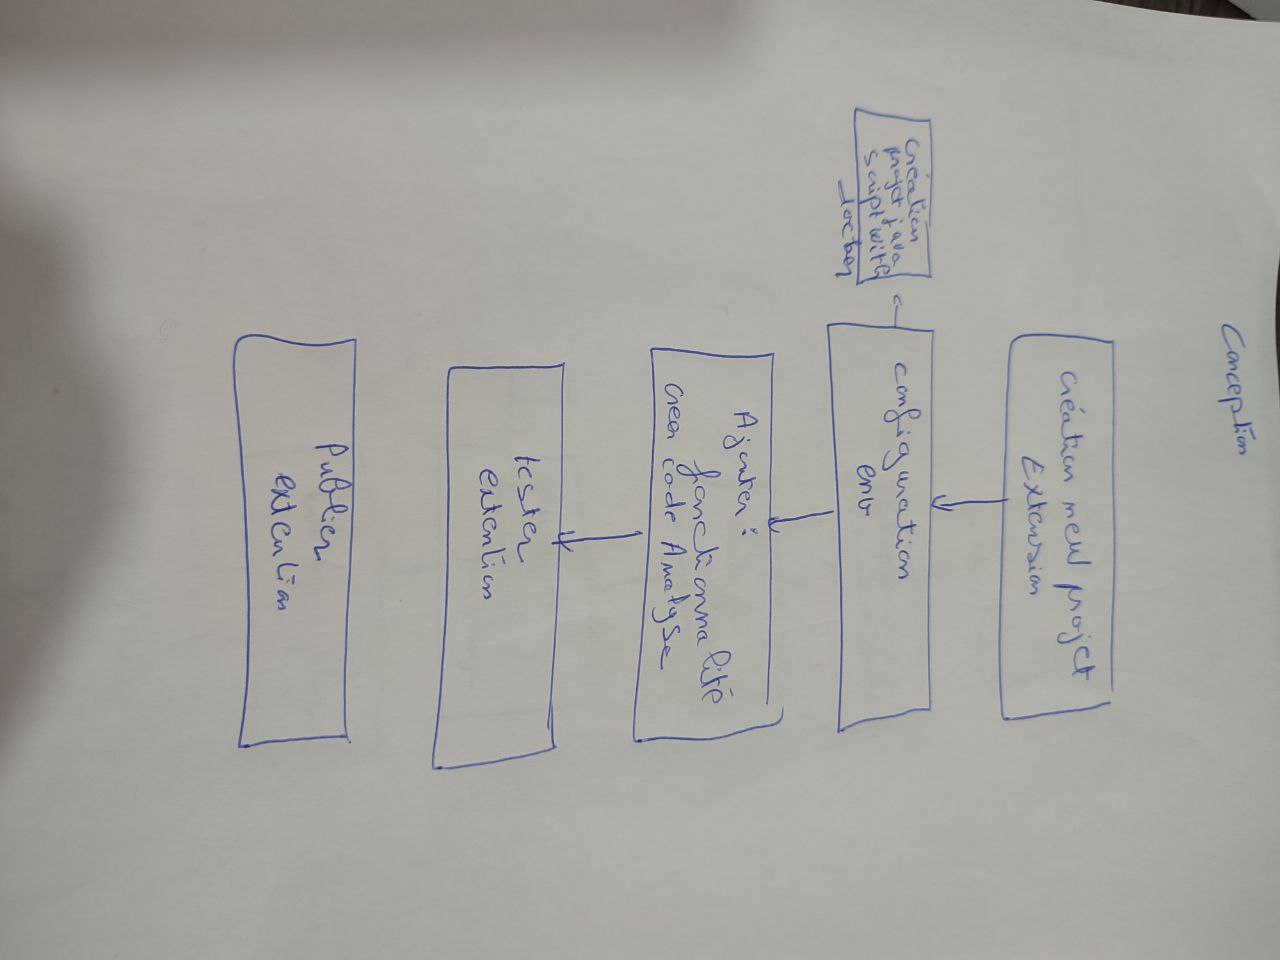 Conception
création new projet
Extension
configuration
env
création
projet java
script with
docker
Ajouter :
fonctionnalité
creer code Analyse
tester
extention
Publier
extention